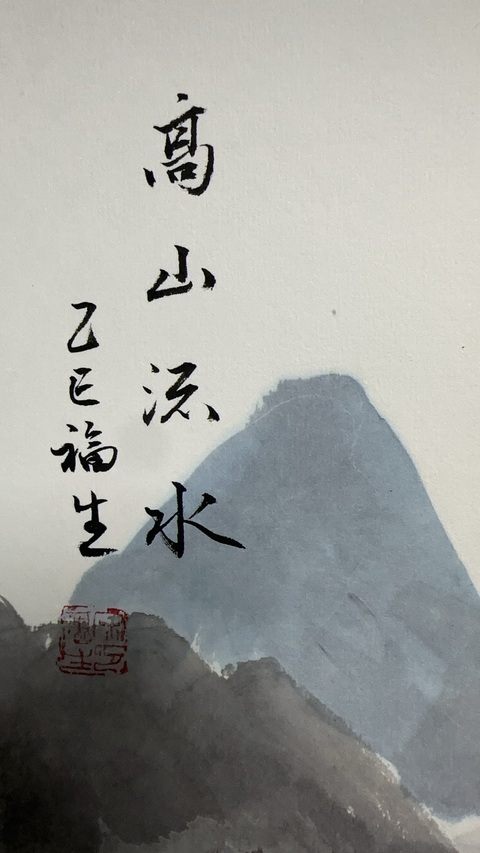 高山流水
乙巳福生